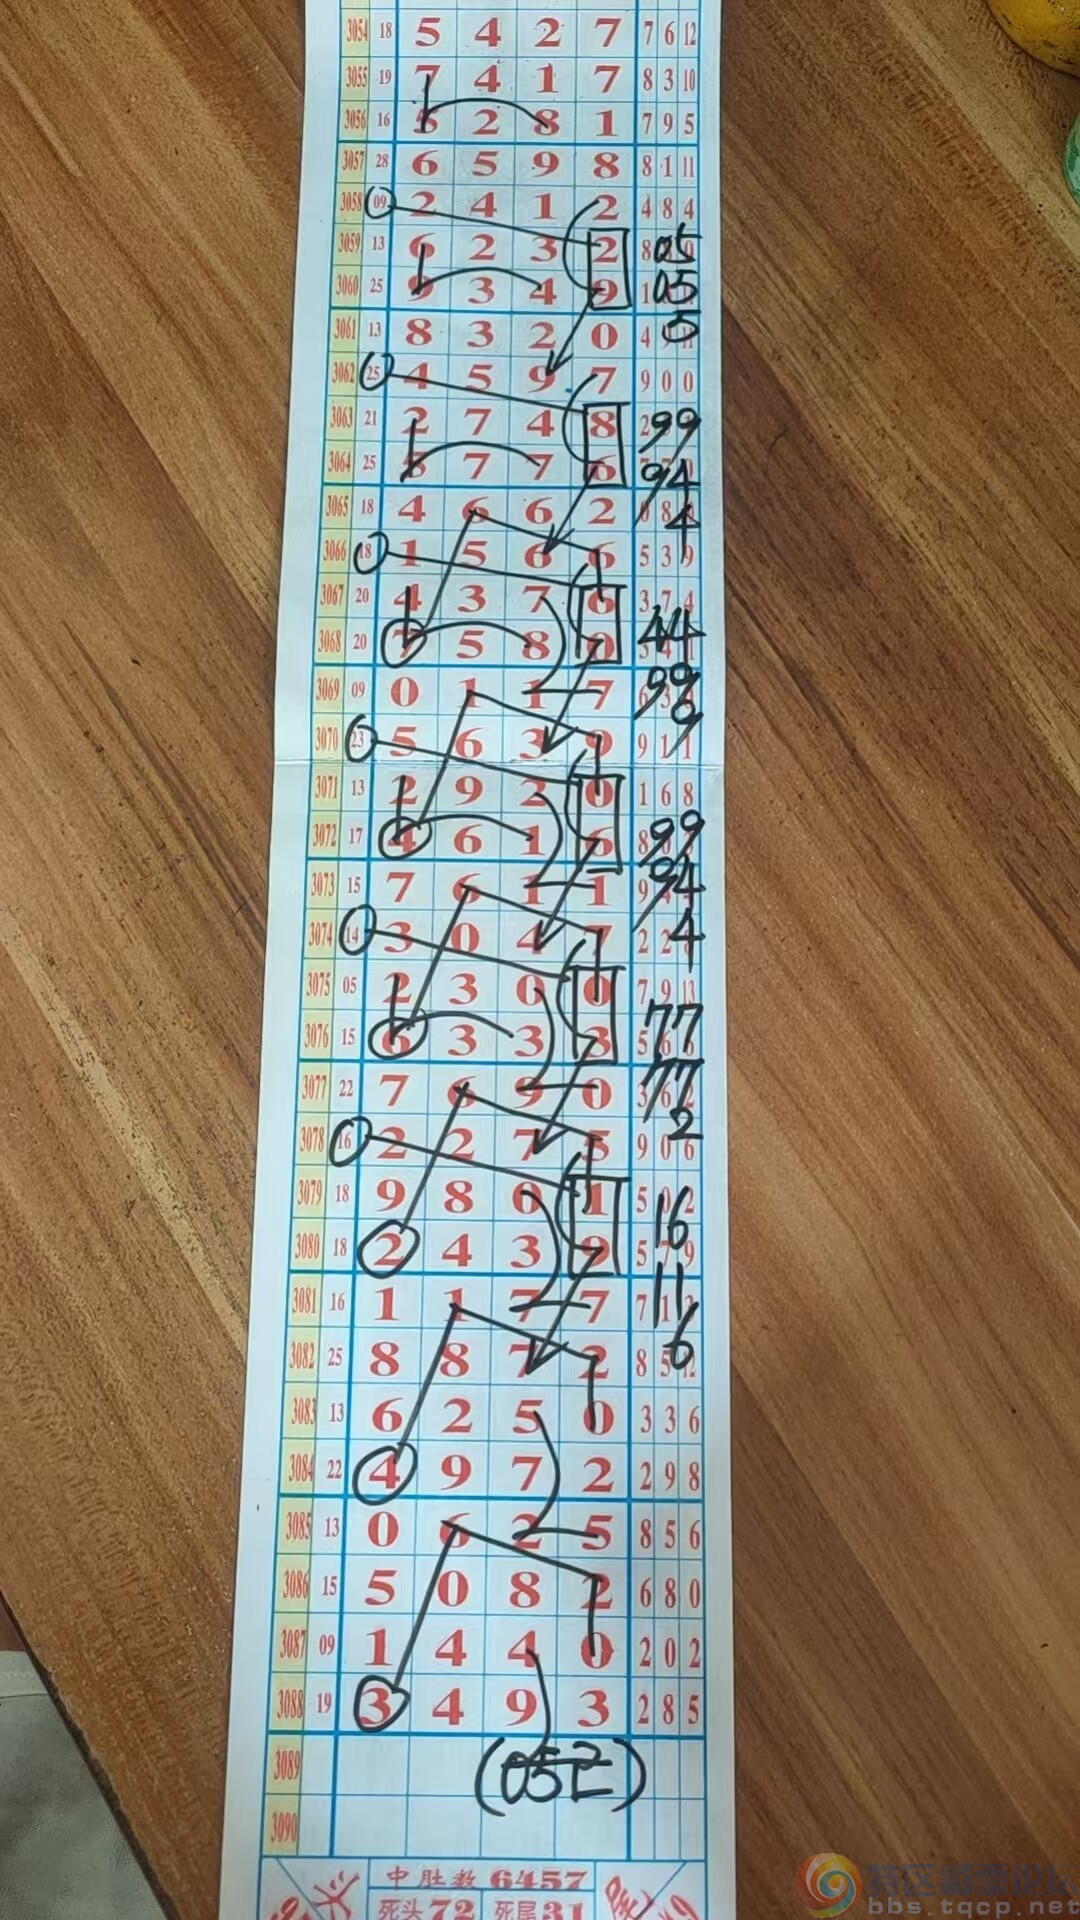 3054 18 5 4 2 7 7 6 12
3055 19 7 4 1 7 8 3 10
3056 16 5 2 8 1 7 9 5
3057 28 6 5 9 8 8 1 11
3058 09 2 4 1 2 4 8 4
3059 13 6 2 3 2 8 05 9
3060 25 9 3 4 9 1 05
3061 13 8 3 2 0 4 5
3062 25 4 5 9 7 9 0 0
3063 21 2 7 4 8 2 99
3064 25 7 7 6 94
3065 18 4 6 6 2 8 4
3066 18 1 5 6 6 5 3 9
3067 20 4 3 7 6 3 7 4
3068 20 7 5 8 44
3069 09 0 1 1 7 6 3 99
3070 23 5 6 3 9 9 1 1 9
3071 13 2 9 2 0 1 6 8
3072 17 4 6 1 6 8 99
3073 15 7 6 1 1 9 94
3074 14 3 0 4 7 2 2 4
3075 05 2 3 0 0 7 9 13
3076 15 6 3 3 3 5 6 77
3077 22 7 6 9 0 3 6 2 77
3078 16 2 2 7 5 9 0 6 2
3079 18 9 8 0 1 5 0 2 16
3080 18 2 4 3 9 5 7 9
3081 16 1 1 7 7 7 1 11
3082 25 8 8 7 2 8 5 12 6
3083 13 6 2 5 0 3 3 6
3084 22 4 9 7 2 2 9 8
3085 13 0 6 2 5 8 5 6
3086 15 5 0 8 2 6 8 0
3087 09 1 4 4 0 2 0 2
3088 19 3 4 9 3 2 8 5
3089 (05乙)
3090
中肚数 6457
死头72 死尾31
bbs.tqcp.net